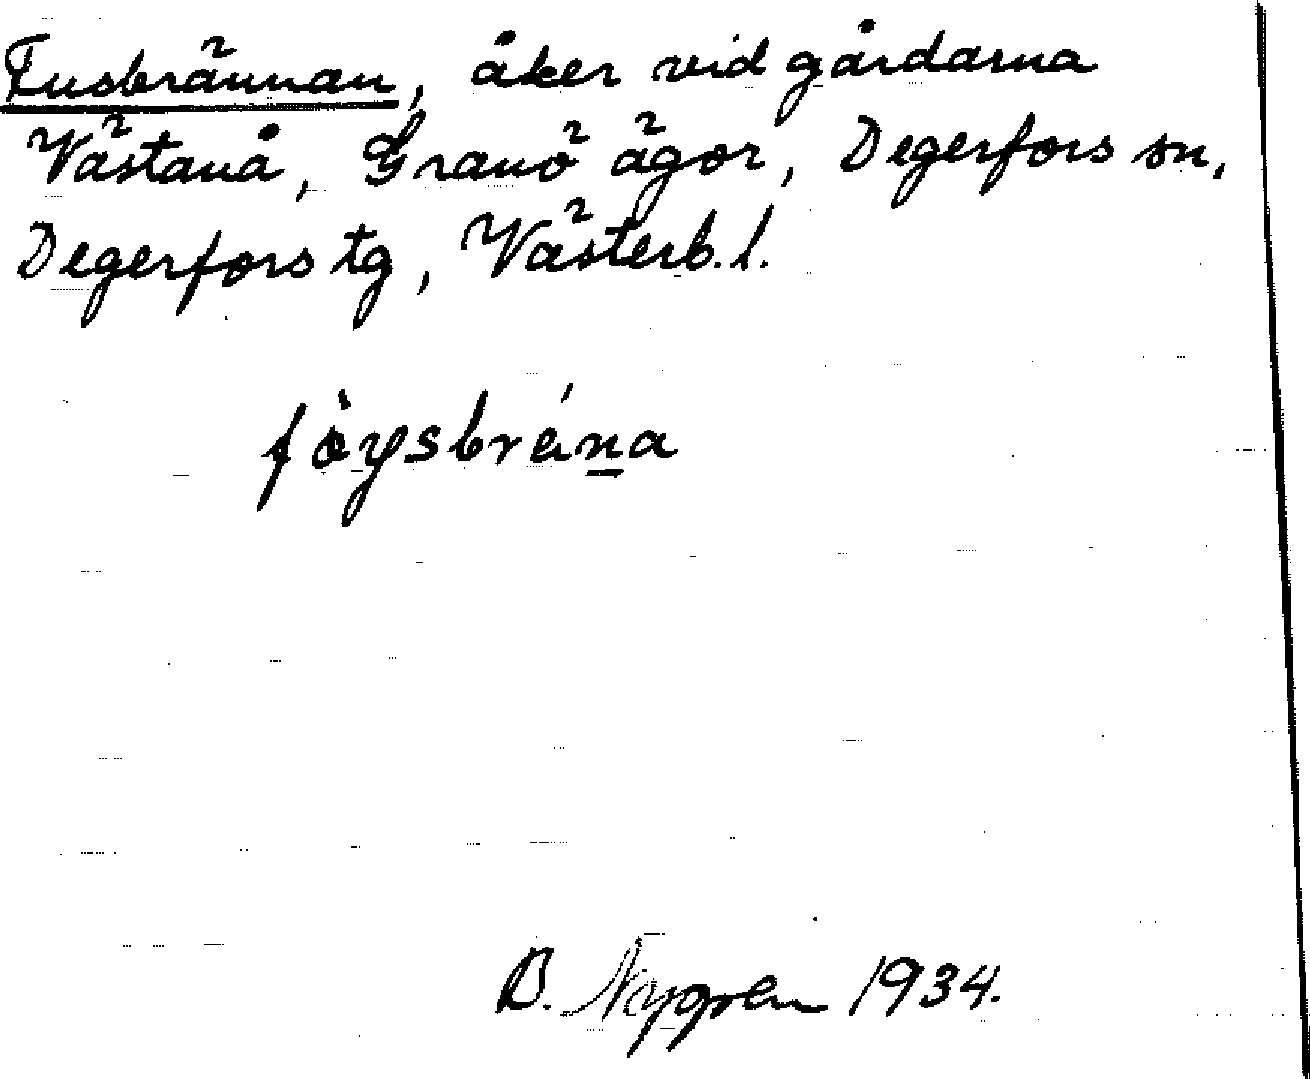 Fusbrännan, åker vid gårdarna
Västanå, Granö ägor, Degerfors sn,
Degerfors tg, Västerb. l.
föysbréna
B. Nygren 1934.